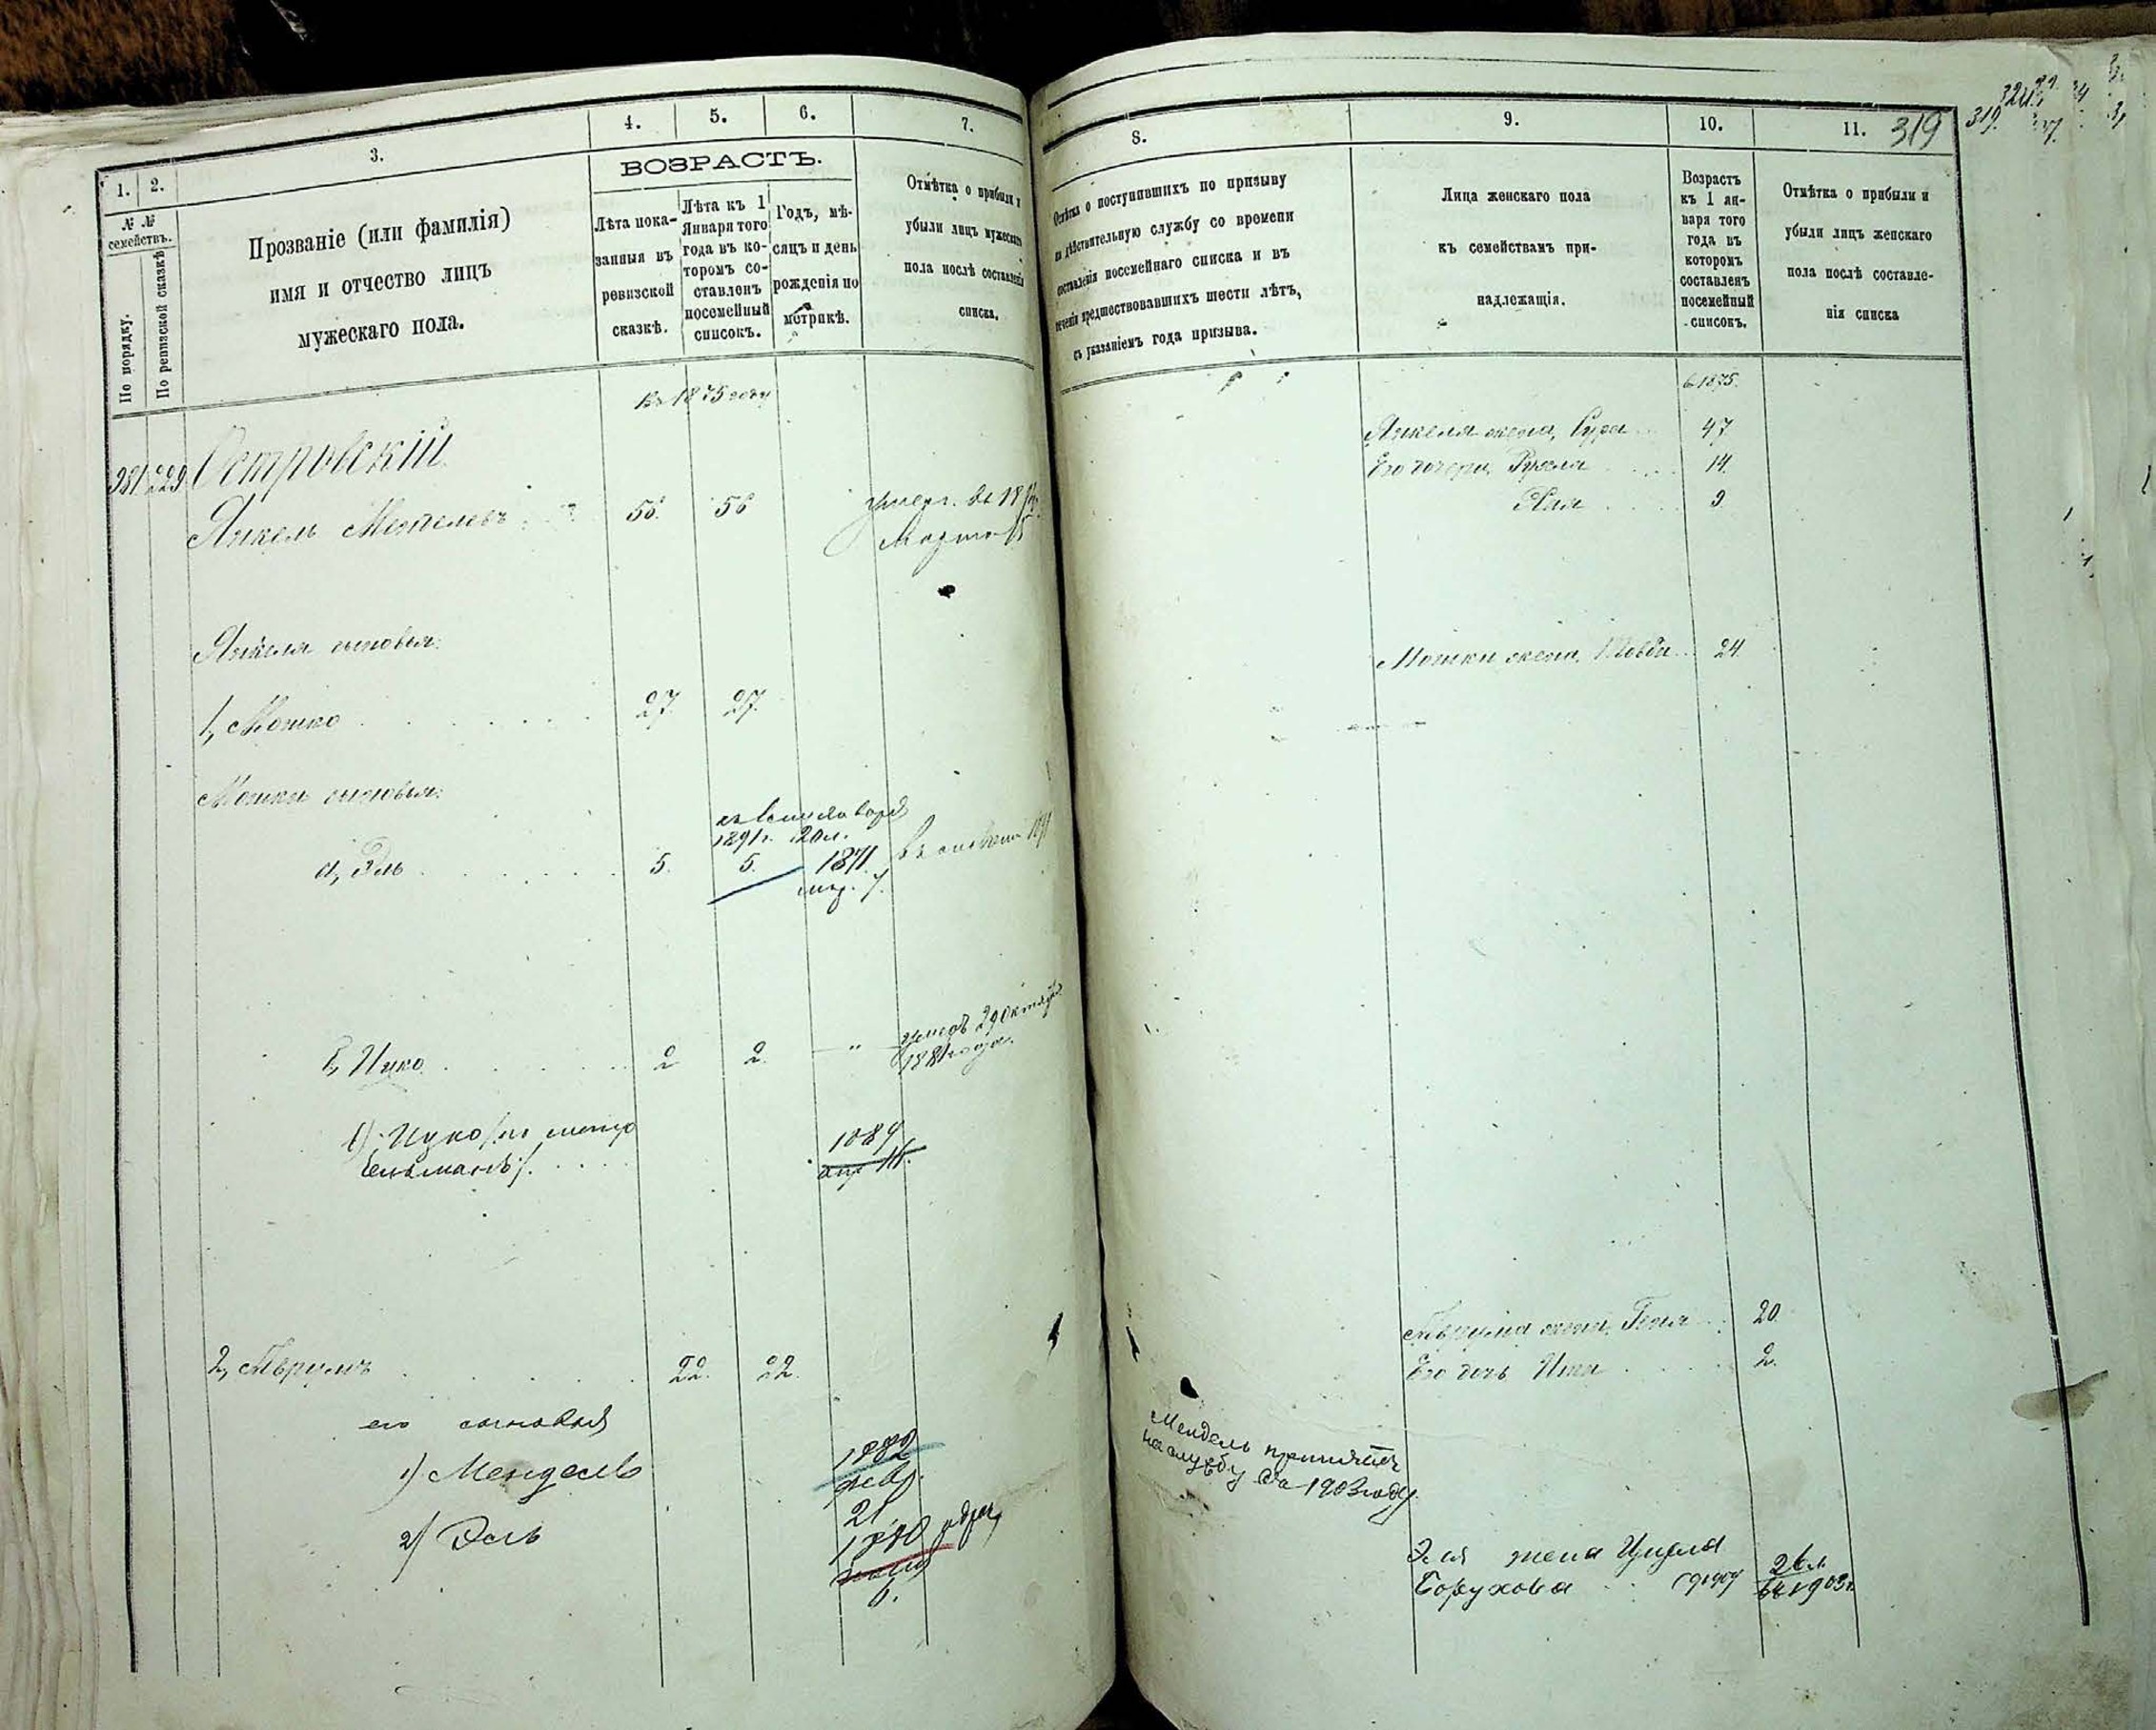 1. 2. 3. 4. 5. 6. 7.
№ №
семействъ.
По порядку.
По ревизской сказкѣ
Прозваніе (или фамилія)
имя и отчество лицъ
мужескаго пола.
ВОЗРАСТЪ.
Лѣта пока-
занныя въ
ревизской
сказкѣ.
Лѣта къ 1
Января того
года въ ко-
торомъ со-
ставленъ
посемейный
списокъ.
Годъ, мѣ-
сяцъ и день
рожденія по
метрикѣ.
Отмѣтка о прибыли и
убыли лицъ мужескаго
пола послѣ составленія
списка.
Въ 1875 году
381 229 Островскій
Янкель 56. 56 умеръ. въ 18
Марта
Янкеля сыновья:
1, Мошко 27. 27.
Мошки сыновья:
1891г. 20л.
а, Эль 5. 5. 1871.
б, Ицко 2 2. " умеръ 29 Октября
1881 года.
в) Ицко /по метр
апр.
2, Аврумъ 22. 22.
его сыновья
1) Мендель 1882
февр.
21
2) Эль 1880
6.
8. 9. 10. 11. 319
319.
Отмѣтка о поступившихъ по призыву
на дѣйствительную службу со времени
составленія посемейнаго списка и въ
теченіи предшествовавшихъ шести лѣтъ,
съ указаніемъ года призыва.
Лица женскаго пола
къ семействамъ при-
надлежащія.
Возрастъ
къ 1 ян-
варя того
года въ
которомъ
составленъ
посемейный
списокъ.
Отмѣтка о прибыли и
убыли лицъ женскаго
пола послѣ составле-
нія списка
въ 1875.
Янкеля жена, Сура 47
Его дочери, 14.
Хая 9
Мошки жена, 24.
Аврума жена, Геня 20
Его дочь Ита 2.
Мендель принятъ
на службу въ 1903 году.
Эля жена
Борухова 26 л.
въ 1903 г.